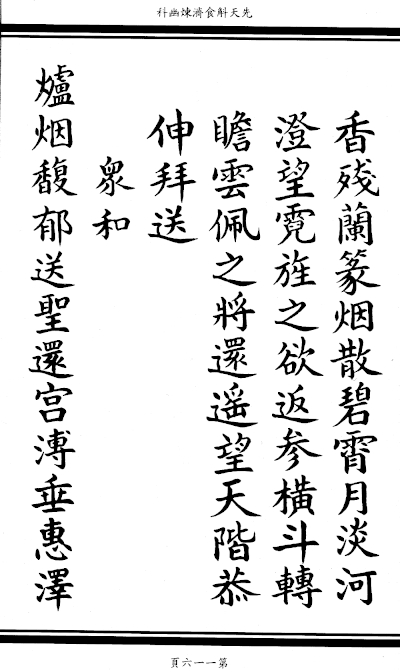 先天斛食濟煉幽科
香殘蘭篆烟散碧霄月淡河
澄望霓旌之欲返参橫斗轉
瞻雲佩之將還遥望天階恭
伸拜送
衆和
爐烟馥郁送聖還宫溥垂惠澤
第一一六頁